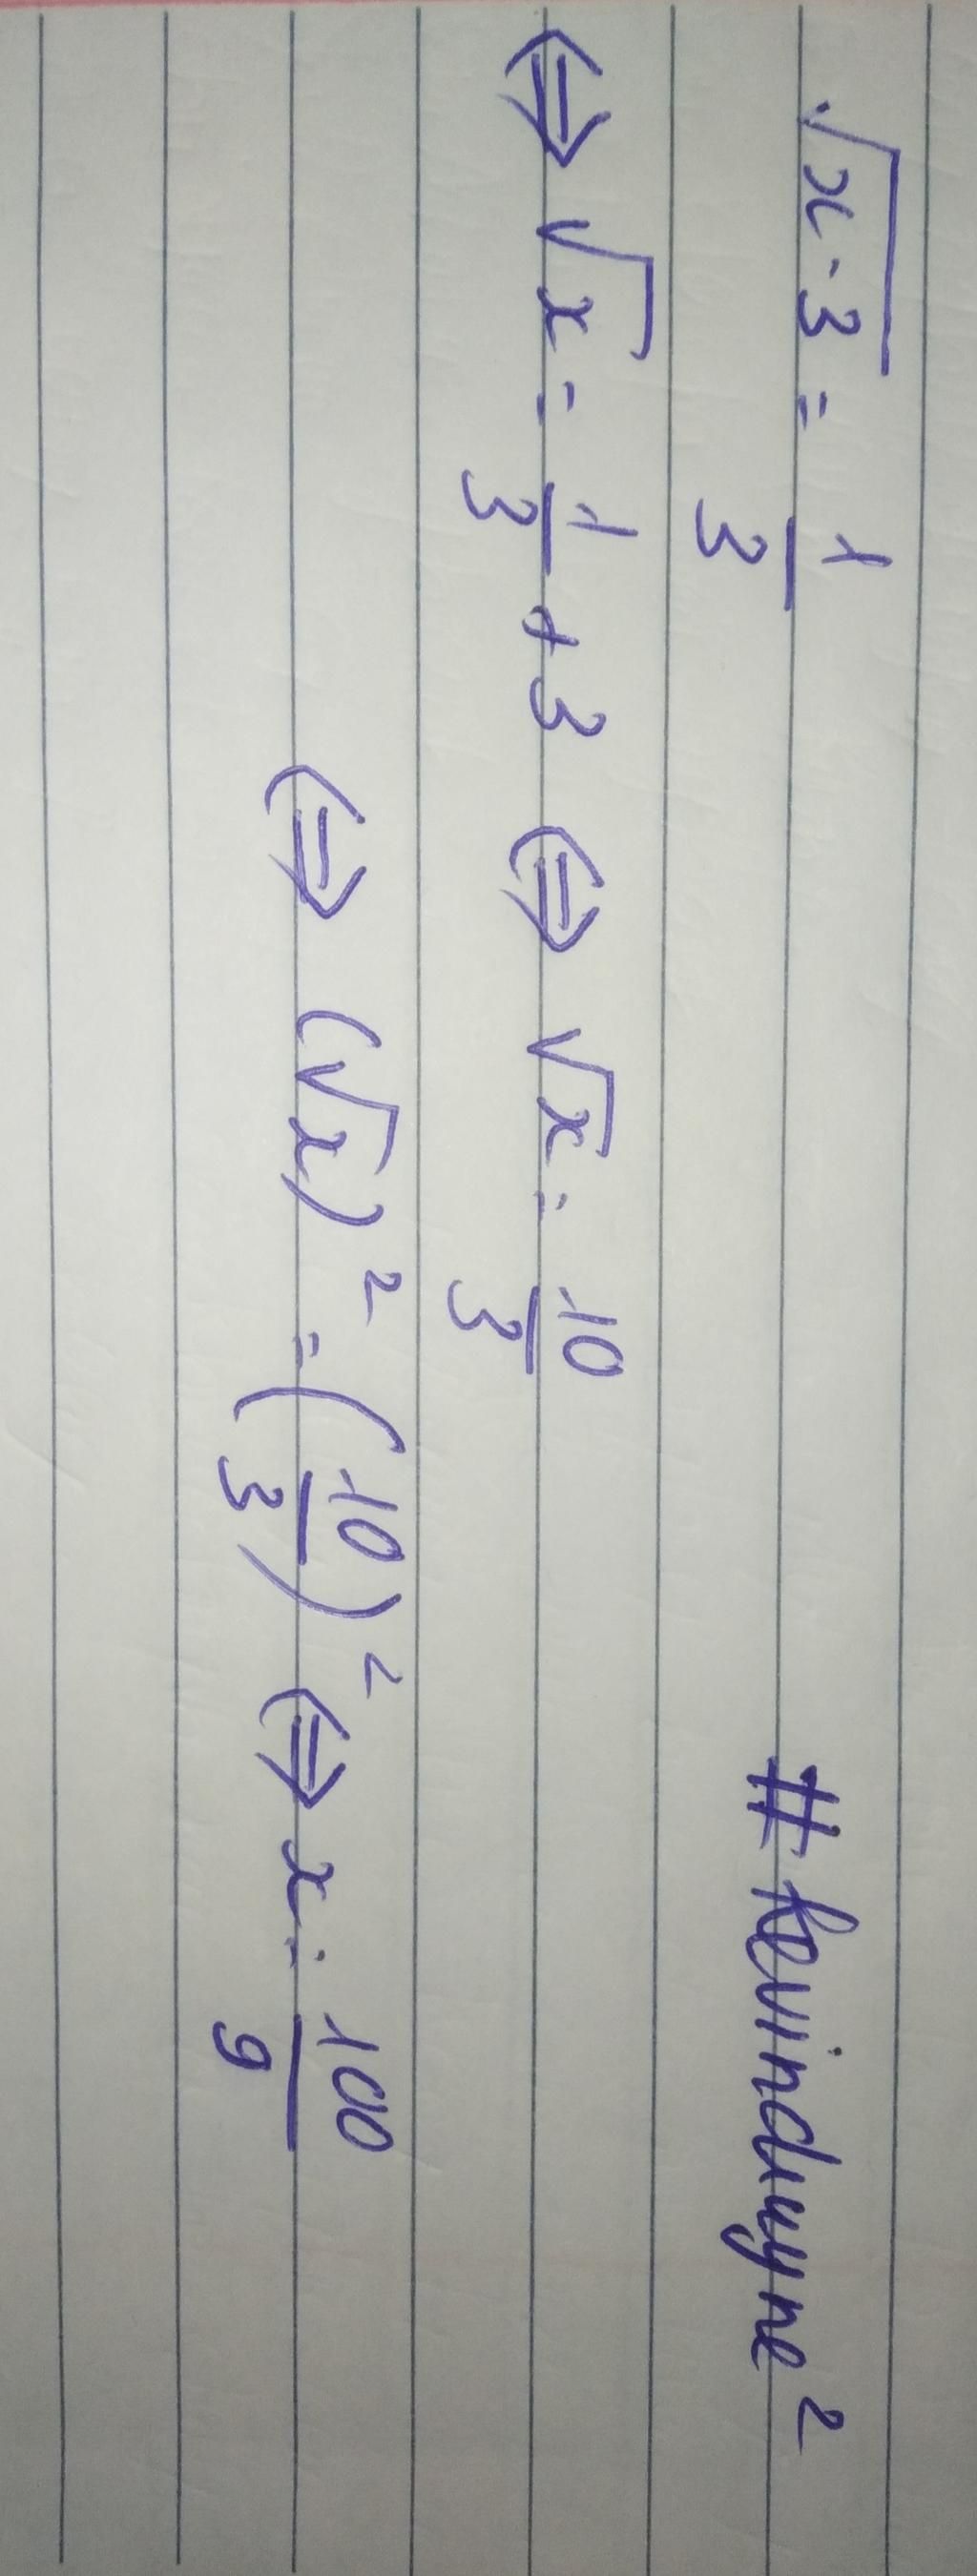 √(x-3) = 1/3 # kevinduyne²
⇔ √x = 1/3 + 3 ⇔ √x = 10/3
⇔ (√x)² = (10/3)² ⇔ x = 100/9